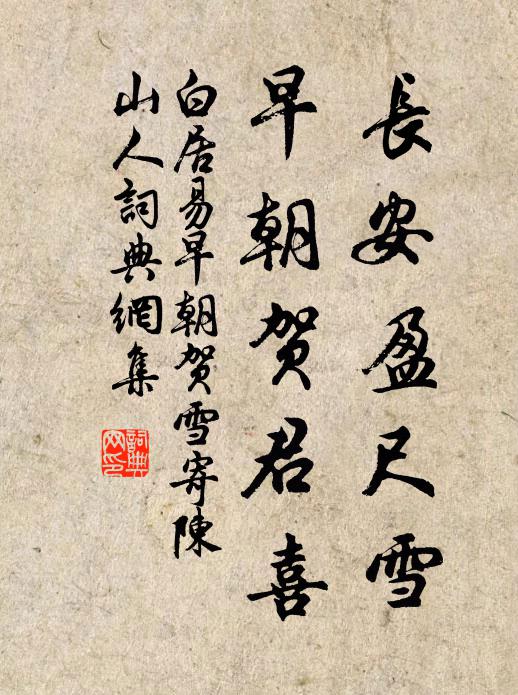 長安盈尺雪
早朝贺君喜
白居易早朝贺雪寄陳
山人詞典網集
詞典
网印